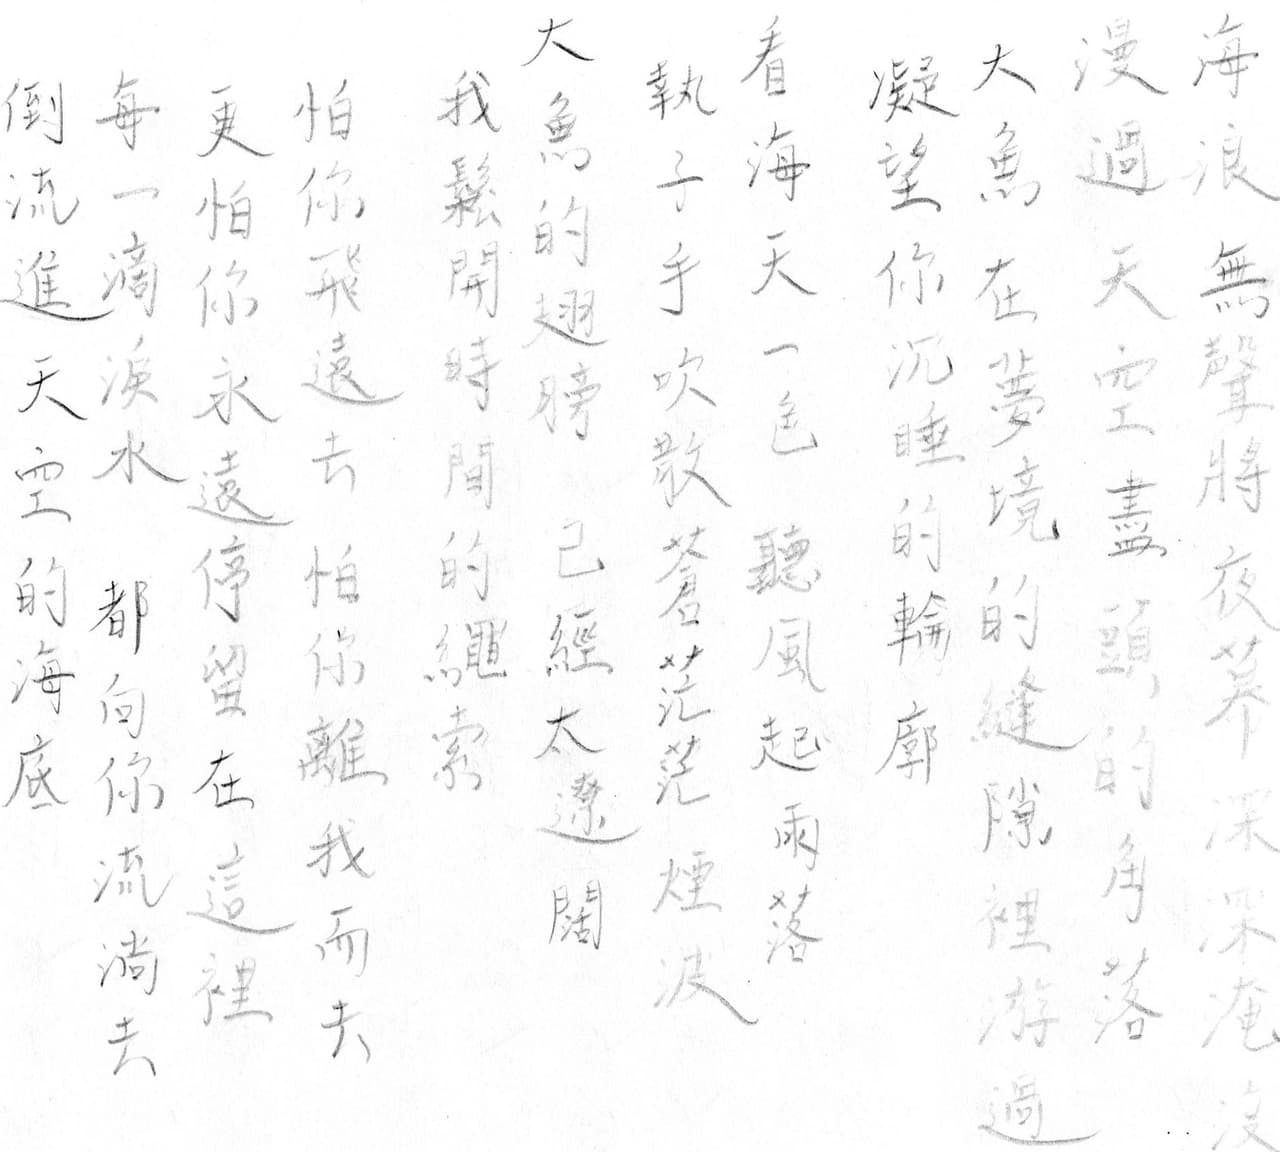 海浪無聲將夜幕深深淹沒
漫過天空盡頭的角落
大魚在夢境的縫隙裡游過
凝望你沉睡的輪廓
看海天一色 聽風起雨落
執子手吹散蒼茫茫煙波
大魚的翅膀 已經太遼闊
我鬆開時間的繩索
怕你飛遠去 怕你離我而去
更怕你永遠停留在這裡
每一滴淚水 都向你流淌去
倒流進天空的海底